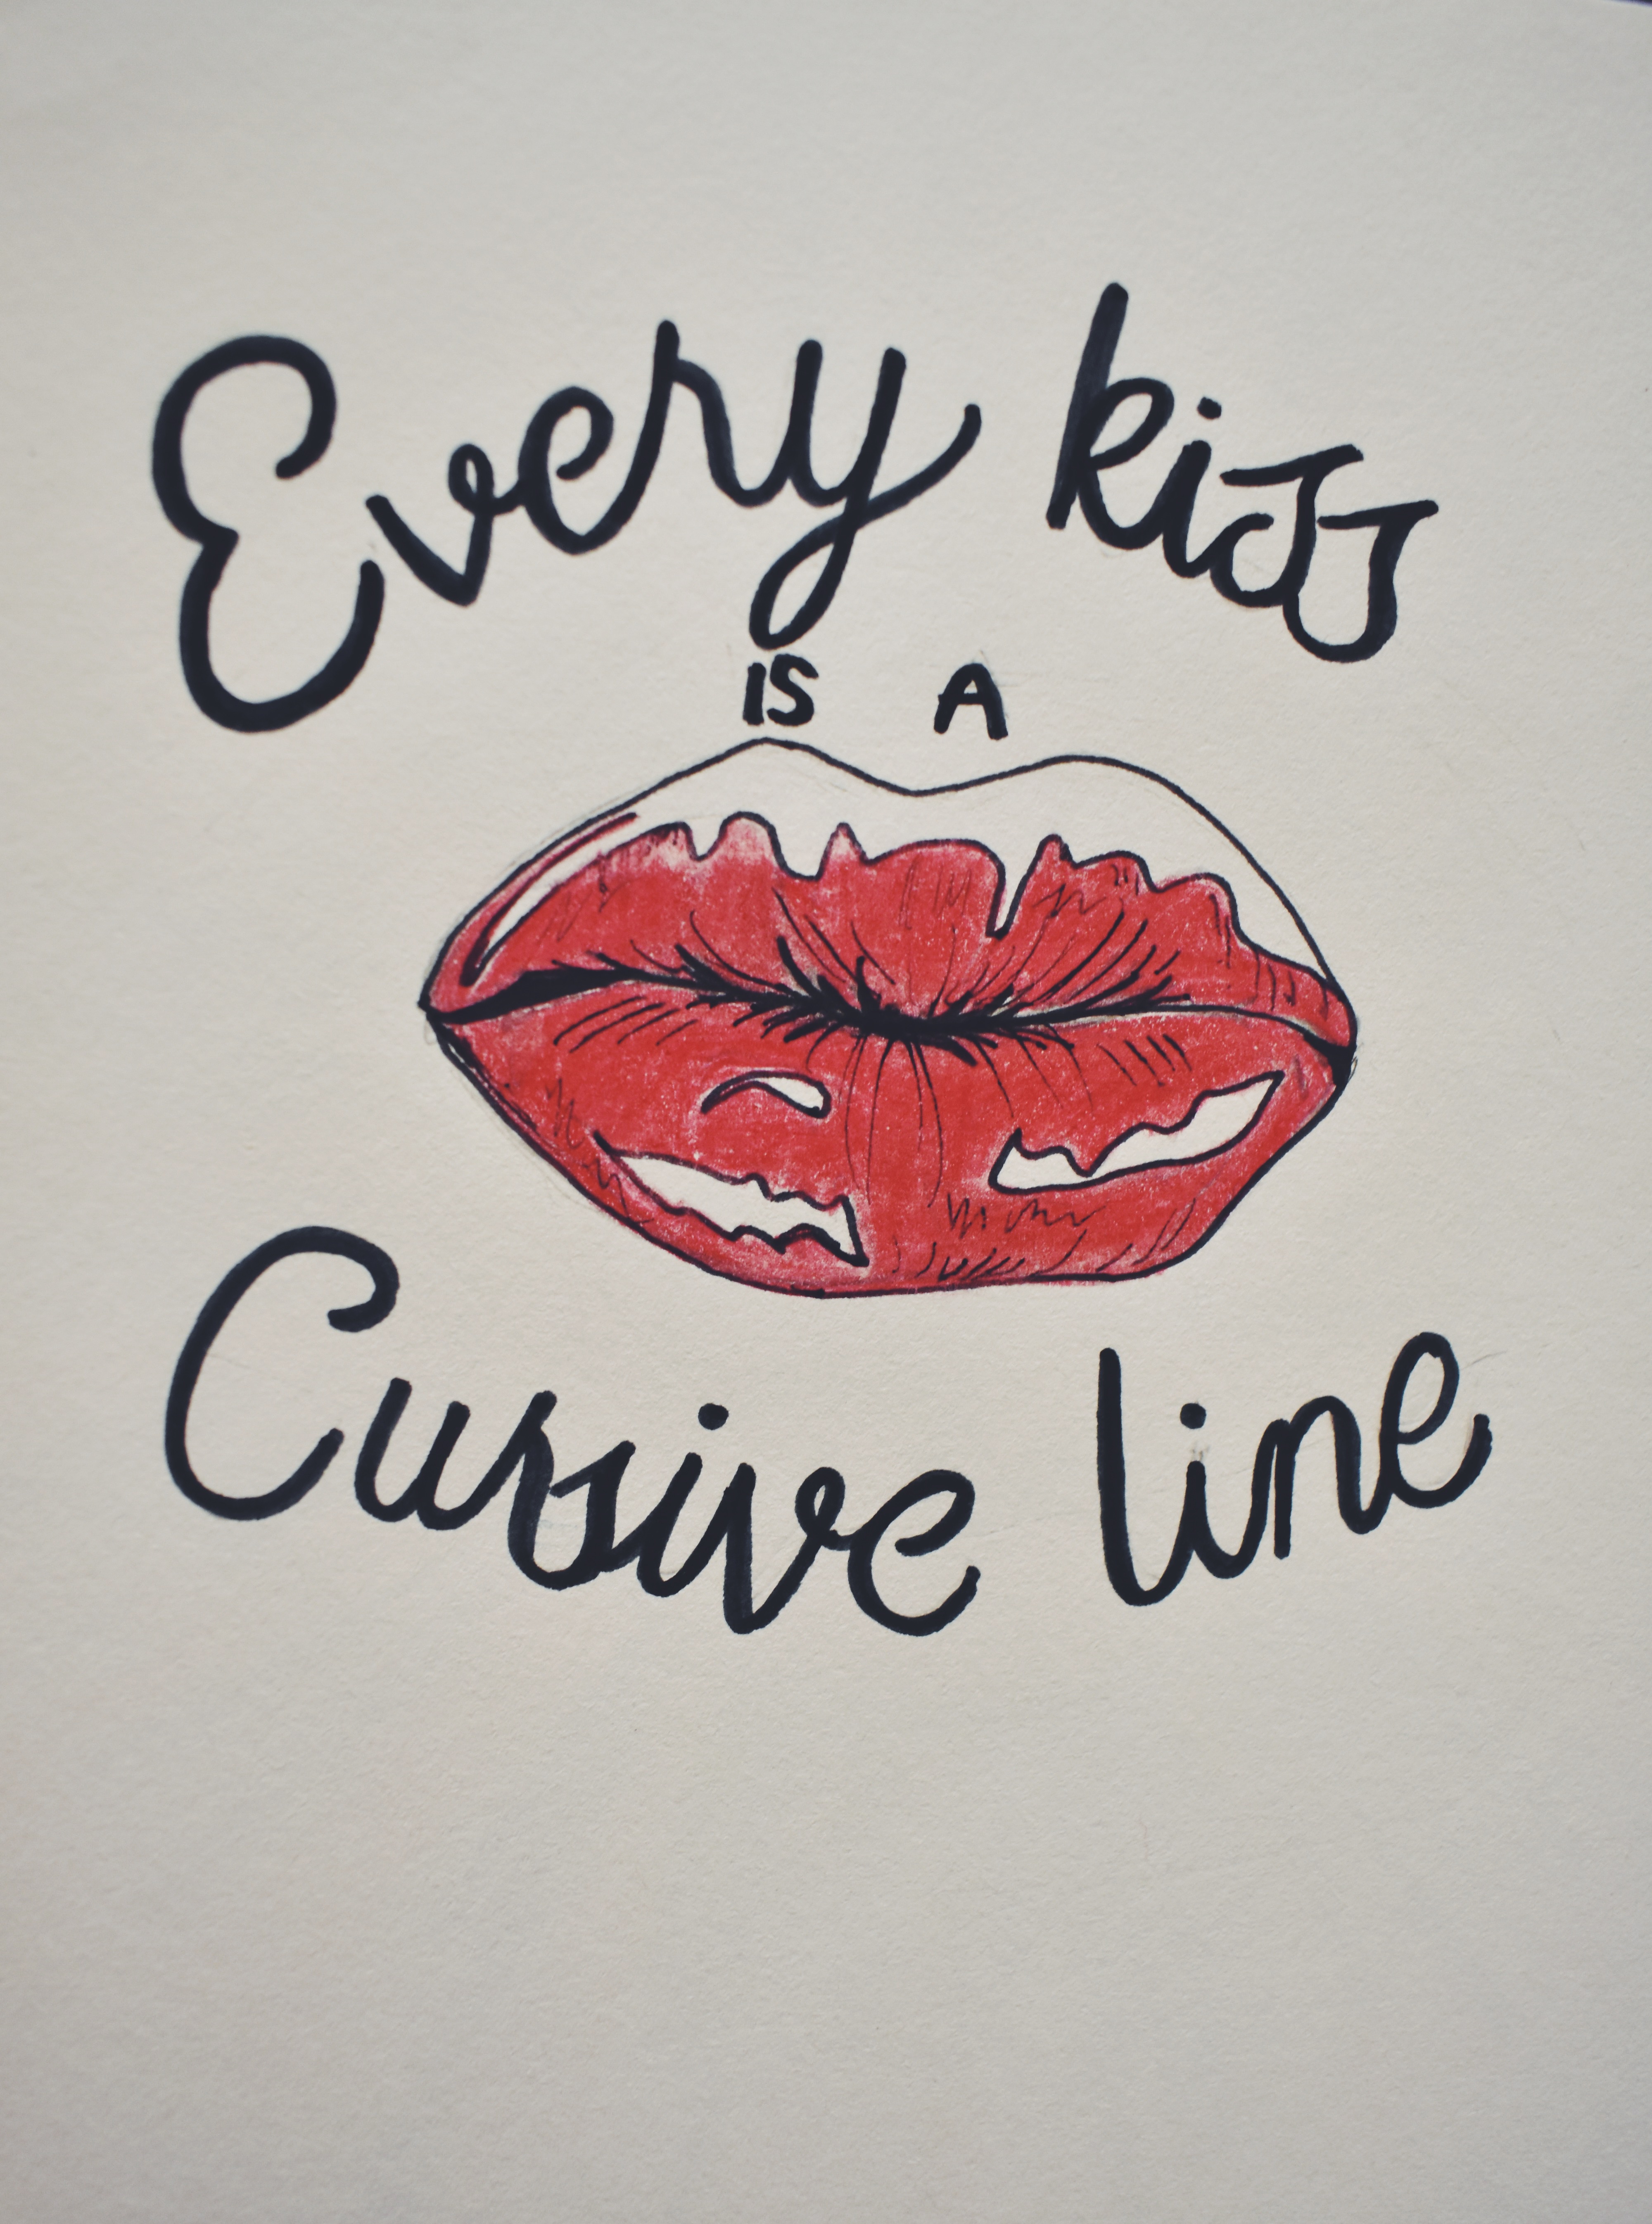 Every kiss
IS A
Cursive line